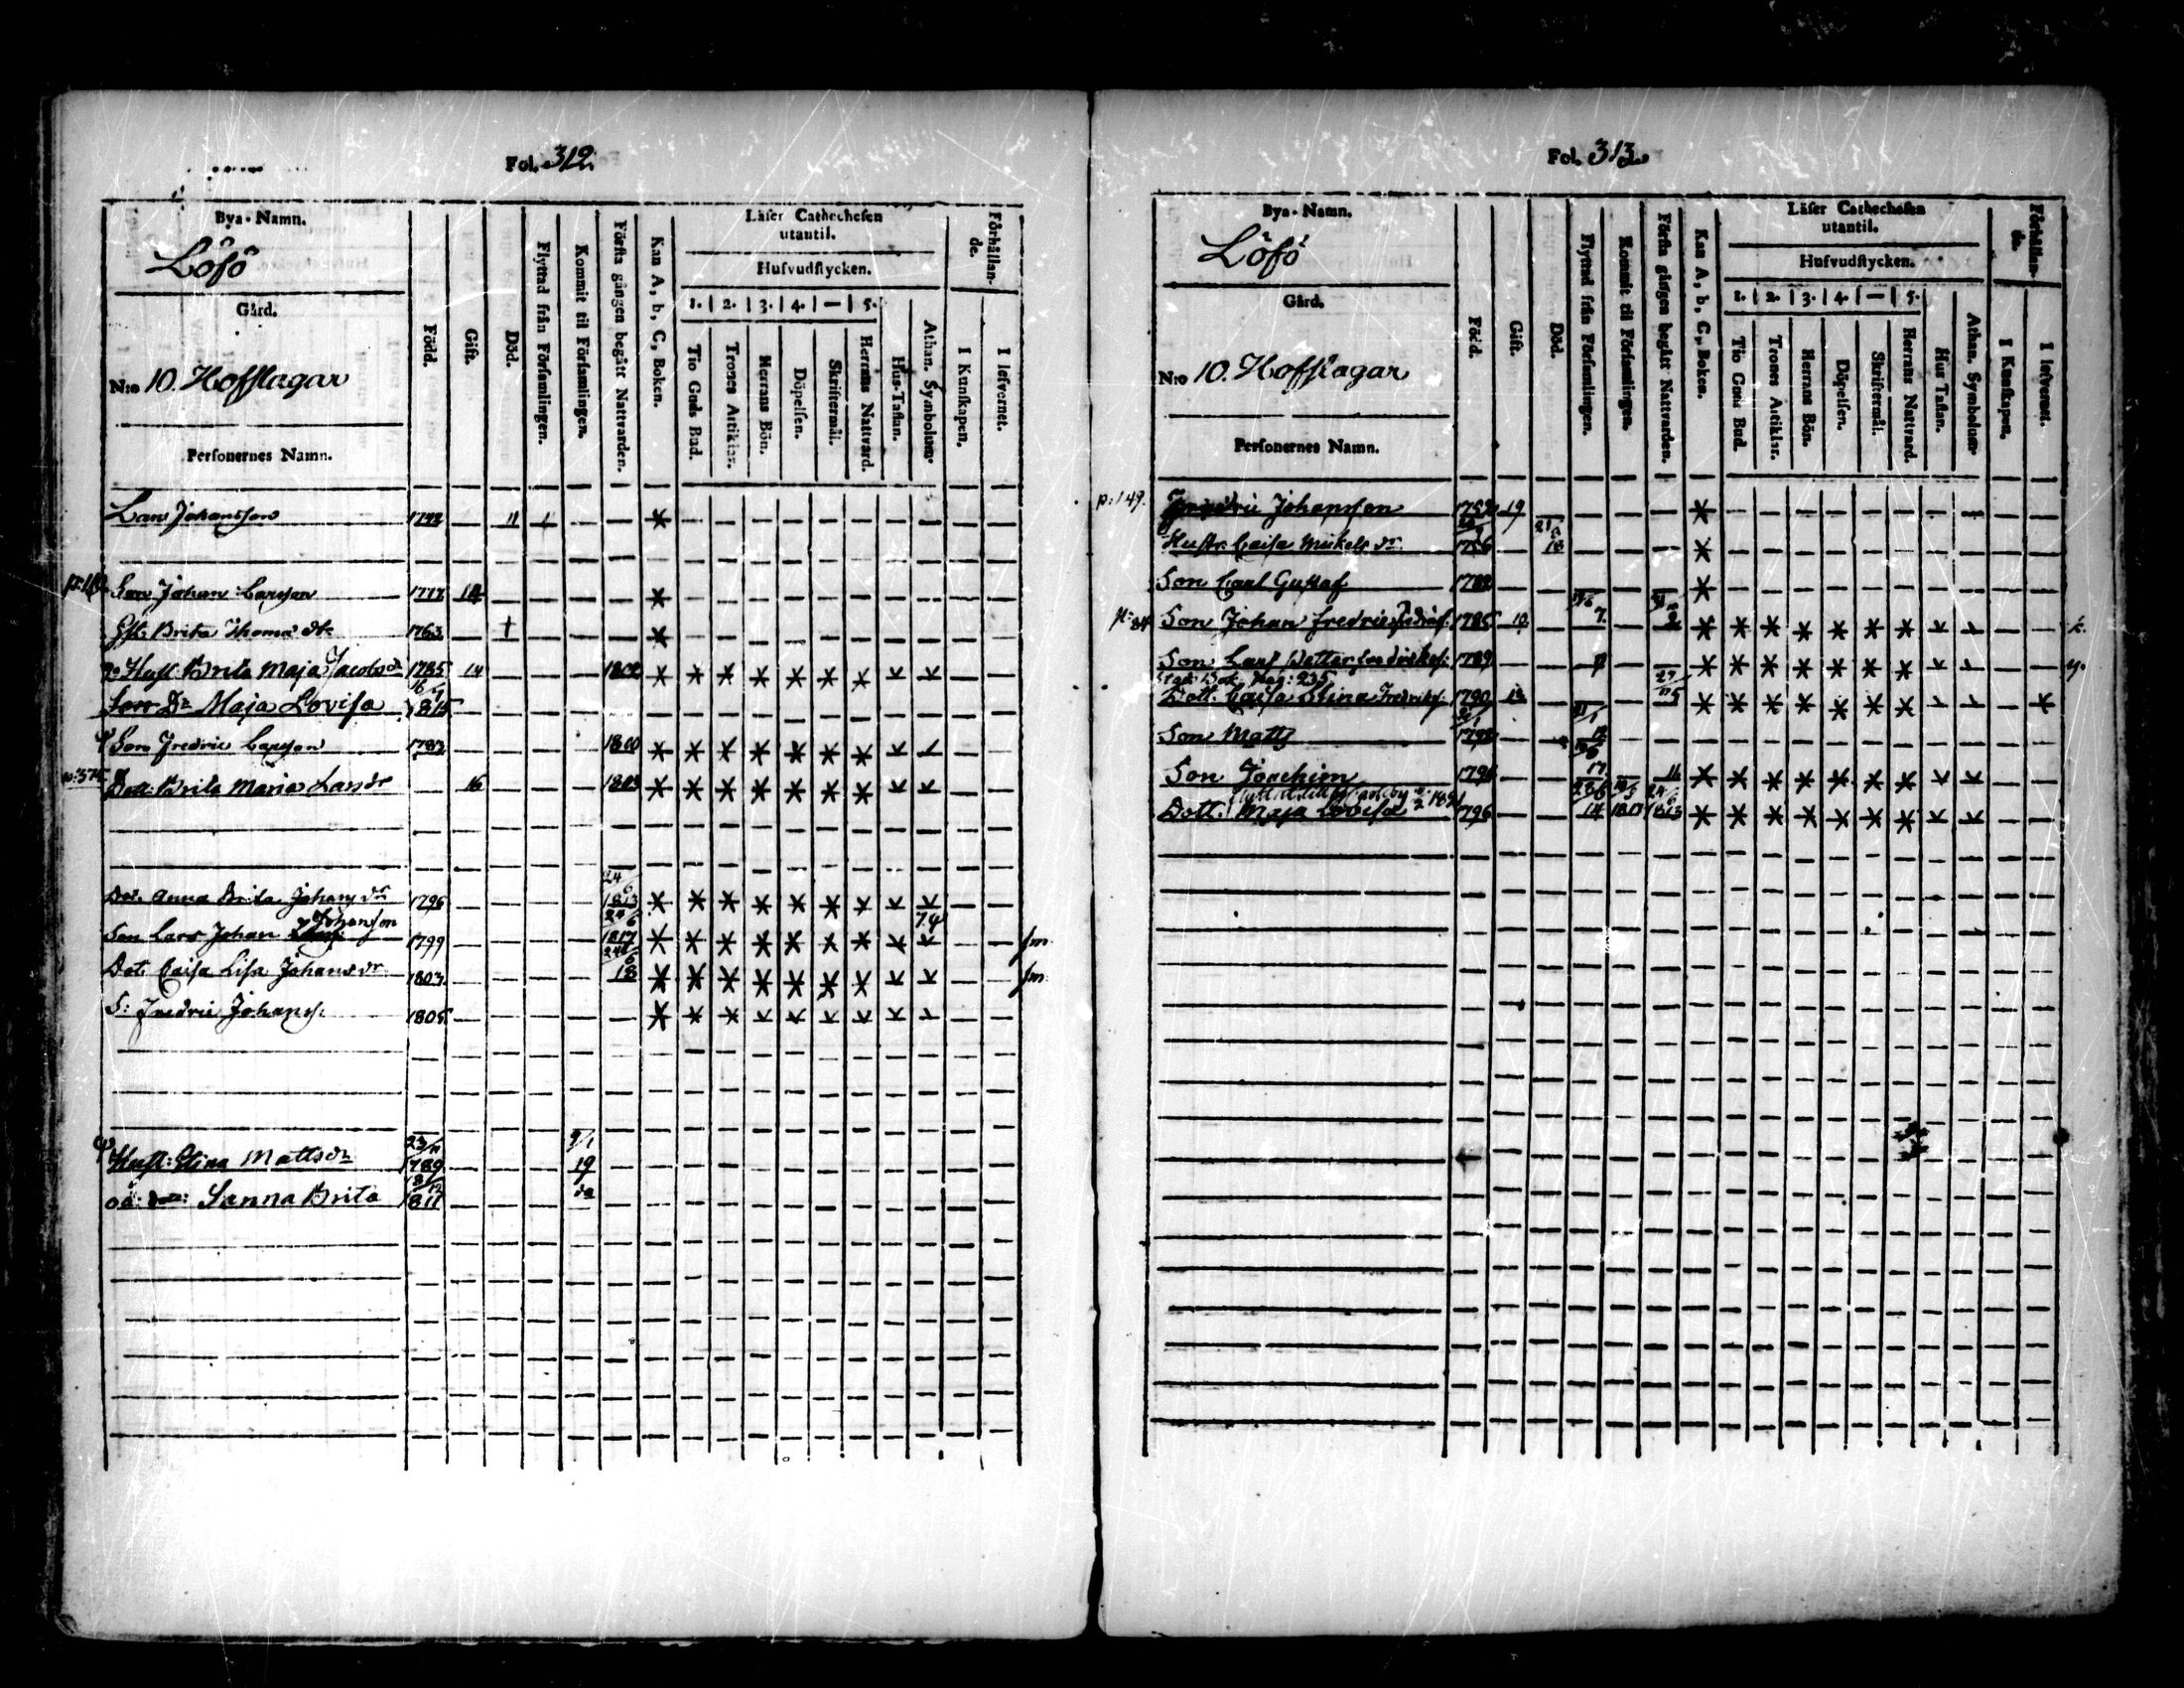 Fol. 312.
Bya-Namn.
Löfö
Gård.
N:o 10. Hofslagar
Personernes Namn.
Född.
Gift.
Död.
Flyttad från Församlingen.
Kommit til Församlingen.
Första gången begått Nattvarden.
Kan A, b, C, Boken.
Läser Cathechesen
utantil.
Hufvudstycken.
1. 2. 3. 4. — 5.
Tio Guds Bud.
Trones Artiklar.
Herrans Bön.
Döpelsen.
Skriftermål.
Herrans Nattvard.
Hus-Taflan.
Athan. Symbolum.
Förhållan-
de.
I Kunskapen.
I lefvernet.
Lars Johansson 1742 11
Son Johan Larsson 1777 14
Hust. Brita Thomæ dtr 1763 †
Hust. Brita Maja Jacobs dr 1785 14 1802
16/7
Dr Maja Lovisa 1815
Son Fredric Larsson 1782 1800
Dott. Brita Maria Lars dr 16 1803
24/6
Dot. Anna Brita Johans dr 1796 1813
Johansson 24/6 74
Son Lars Johan 1799 1817 fm
24/6
Dot. Caisa Lisa Johans dr 1803 18 fm
S: Fredric Johanss. 1805
23/11 9/1
Hust: Stina Matts dr 1789 19
18/12
Sanna Brita 1811 do
Fol. 313.
Bya-Namn.
Löfö
Gård.
N:o 10. Hofslagar
Personernes Namn.
Född.
Gift.
Död.
Flyttad från Församlingen.
Kommit til Församlingen.
Första gången begått Nattvarden.
Kan A, b, C, Boken.
Läser Cathechesen
utantil.
Hufvudstycken.
1. 2. 3. 4. — 5.
Tio Guds Bud.
Trones Artiklar.
Herrans Bön.
Döpelsen.
Skriftermål.
Herrans Nattvard.
Hus Taflan.
Athan. Symbolum.
Förhållan-
de.
I Kunskapen.
I lefvernet.
p: 149. Fredric Johansson 1752 19
Hustr. Caisa Mickels dr 1756 18
Son Carl Gustaf 1782
Son Johan Fredric 1785 10 7
Son Lars Petter Fredrickss. 1789
pag: 235
Dott. Caisa Stina Fredricks. 1790 12
Son Matts 1792 12
Son Joachim 1796 17 11
Dott. Maja Lovisa 1796 14 1813 1813